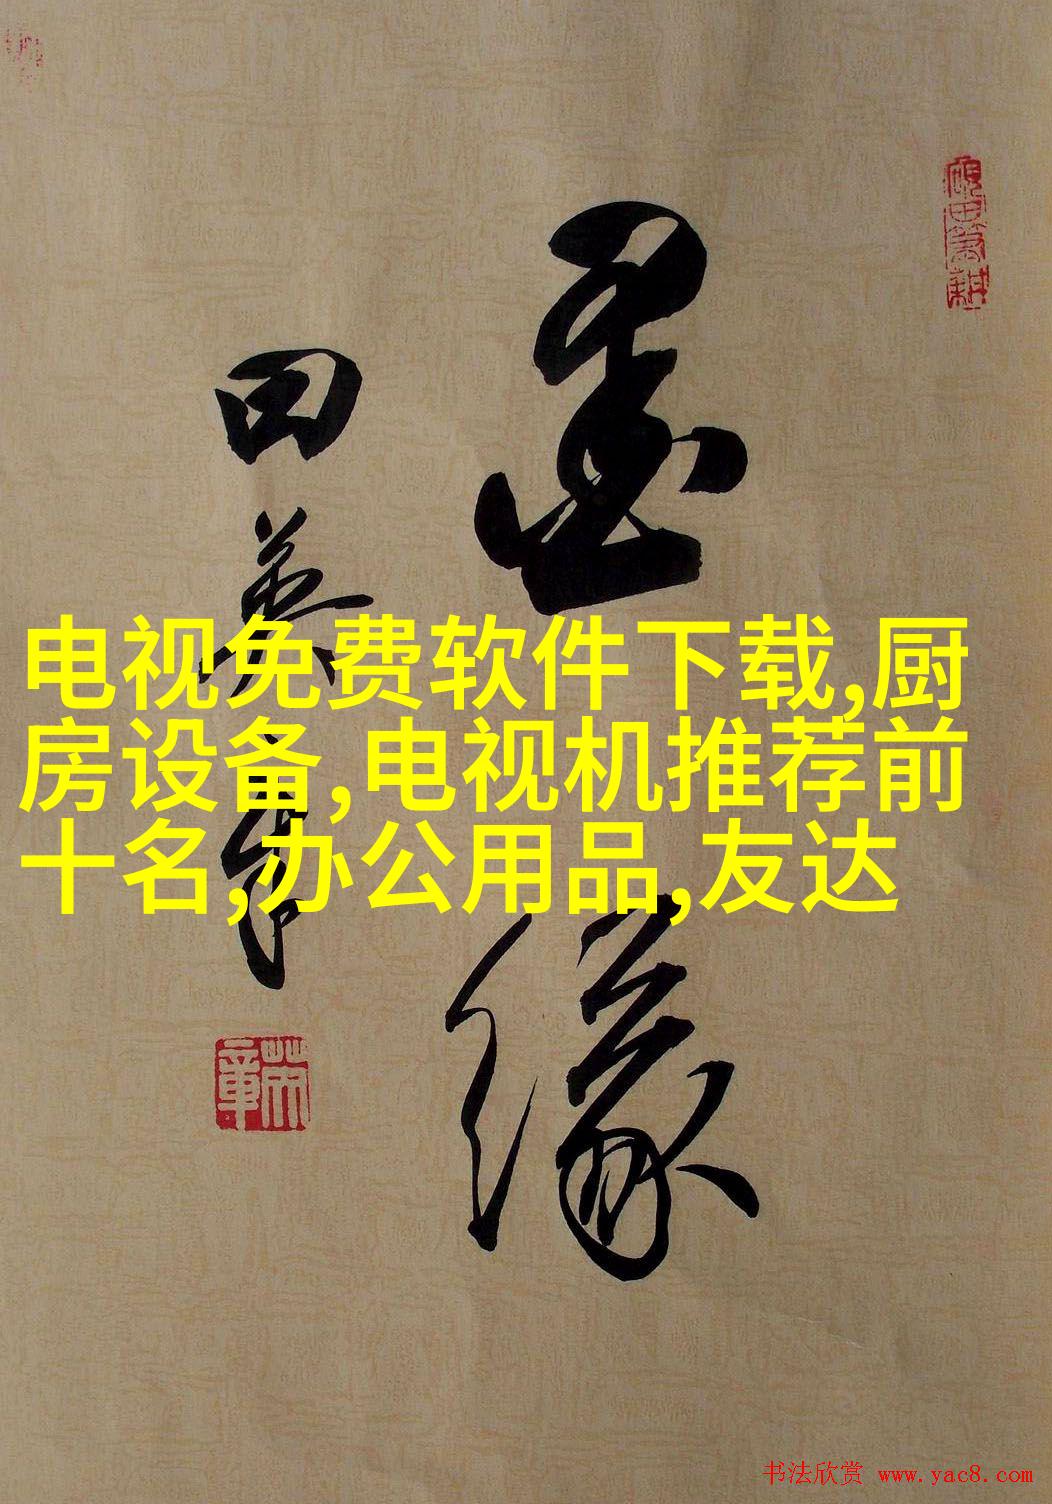 硯田筆耕
墨缘
田英章
电视免费软件下载,厨
房设备,电视机推荐前
十名,办公用品,友达
书法欣赏 www.yac8.com